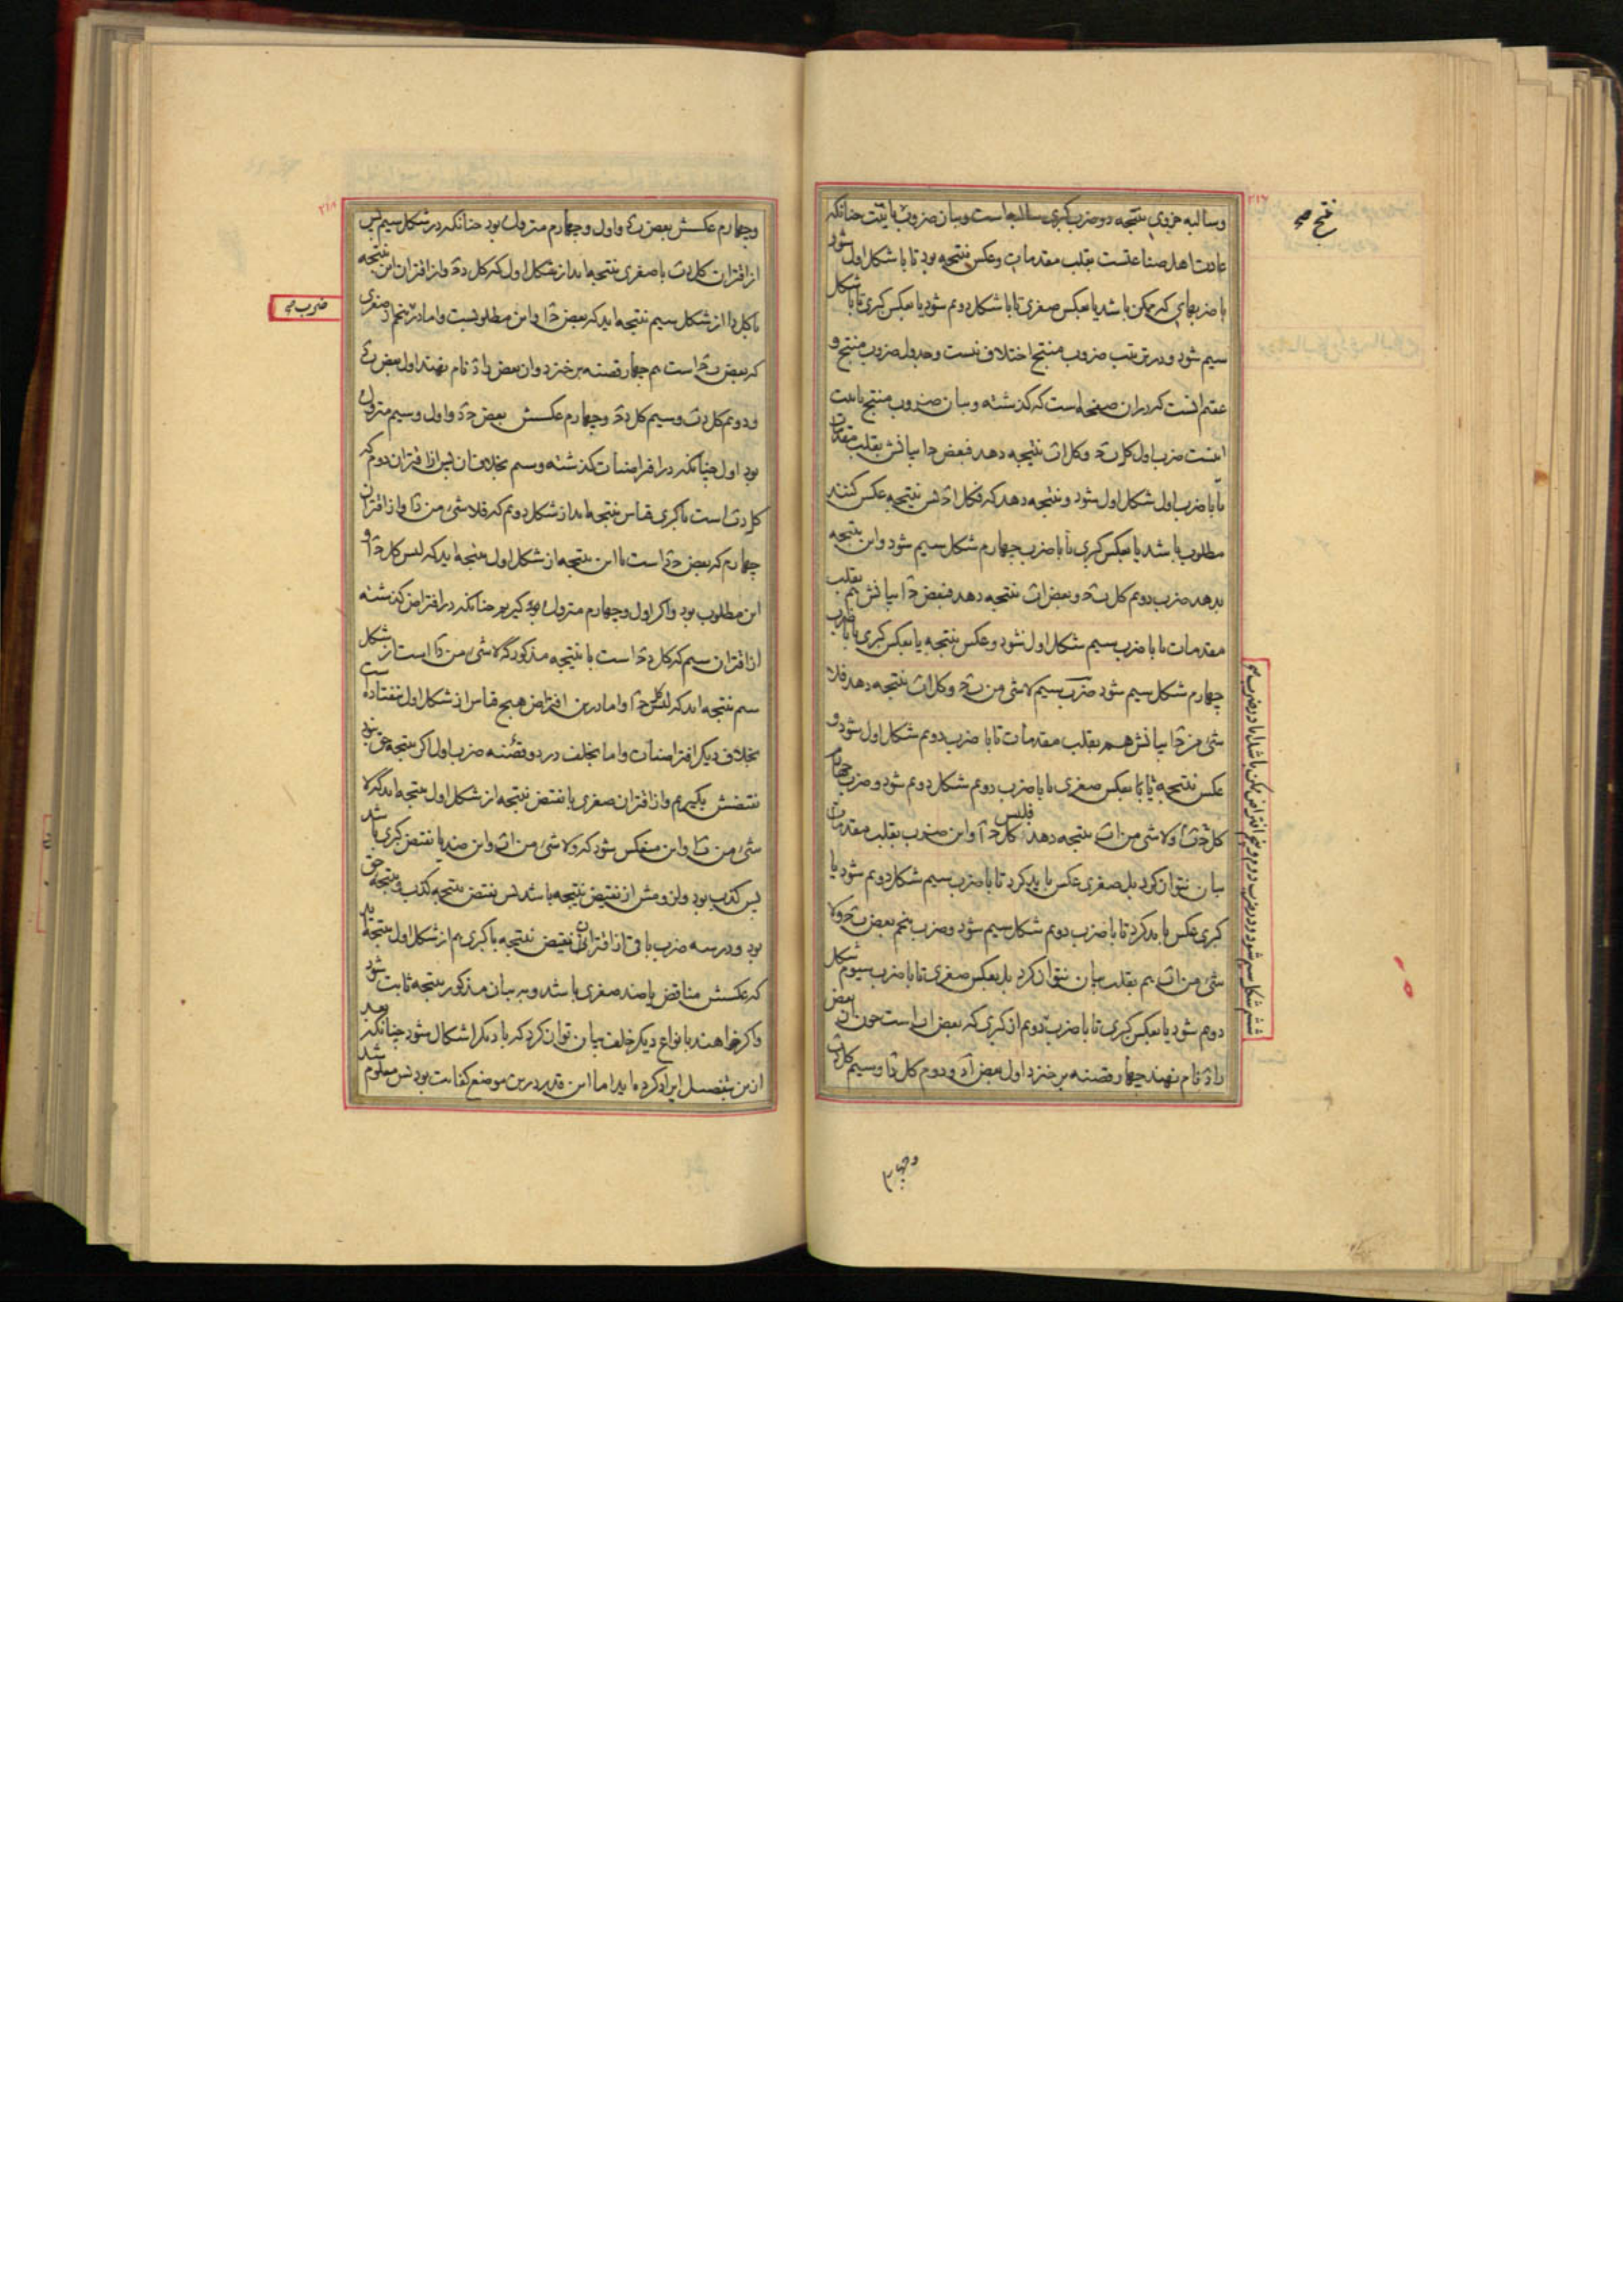 وسالبه جزوی نتیجه دو ضرب کبری سالبه است و بیان ضروب باینست چنانکه
عادت اهل صناعتست بقلب مقدمات و عکس نتیجه بود تا با شکل اول شود
با ضربهای که ممکن باشد یا بعکس صغری تا با شکل دوم شود یا بعکس کبری تا با شکل
سیم شود و در ترتیب ضروب منتج اختلاف نیست و جدول ضروب منتج و
عقیم اینست که در ان صفحه است که گذشته و بیان ضروب منتج باینت
اینست ضرب اول کل ب ج و کل ا ب نتیجه دهد فبعض ج ا بیانش بقلب مقدمات
تا با ضرب اول شکل اول شود و نتیجه دهد که فکل ا ج پس نتیجه عکس کنند
مطلوب باشد یا بعکس کبری تا با ضرب چهارم شکل سیم شود و این نتیجه
بدهد ضرب دوم کل ب ج و بعض ا ب نتیجه دهد فبعض ج ا بیانش هم بقلب
مقدمات تا با ضرب سیم شکل اول شود و عکس نتیجه یا بعکس کبری تا با ضرب
چهارم شکل سیم شود ضرب سیم لا شی من ب ج و کل ا ب نتیجه دهد فلا
شی من ج ا بیانش هم بقلب مقدمات تا با ضرب دوم شکل اول شود و
عکس نتیجه یا بعکس صغری تا با ضرب دوم شکل دوم شود و ضرب چهارم
کل ج ب و لا شی من ا ب نتیجه دهد فلیس کل ج ا و این ضرب بقلب مقدمات
بیان نتوان کرد بل صغری عکس باید کرد تا با ضرب سیم شکل دوم شود یا
کبری عکس باید کرد تا با ضرب دوم شکل سیم شود و ضرب پنجم بعض ب ج و لا
شی من ا ب هم بقلب بیان نتوان کرد بل بعکس صغری تا با ضرب سیوم شکل
دوم شود یا بعکس کبری تا با ضرب دوم از کبری که بعض ا ب است چون ان بعض
را د نام نهند چهار قضیه برخیزد اول بعض ا د و دوم کل د ا و سیم کل د ب
منتج
وچهارم
وچهارم عکسش بعض ب د و اول و چهارم متروک بود چنانکه در شکل سیم پس
از اقتران کل د ب با صغری نتیجه اید از شکل اول که کل د ج و از اقتران این نتیجه
با کل د ا از شکل سیم نتیجه اید که بعض ج ا و این مطلوبست و اما در پنجم از صغری
که بعض ب ج است هم چهار قضیه برخیزد و ان بعض را د نام نهند اول بعض ب د
و دوم کل د ب و سیم کل د ج و چهارم عکسش بعض ج د و اول و سیم متروک
بود اول چنانکه در افتراضیات گذشته و سیم بخلاف ان پس از اقتران دوم که
کل د ب است با کبری قیاس نتیجه اید از شکل دوم که فلا شی من د ا و از اقتران
چهارم که بعض ج د است با این نتیجه از شکل اول نتیجه اید که لیس کل ج ا و
این مطلوب بود و اگر اول و چهارم متروک گیریم چنانکه در افتراض گذشته
از اقتران سیم که کل د ج است با نتیجه مذکور که لا شی من د ا است از شکل
سیم نتیجه اید که لیس کل ج ا و اما درین افتراض هیچ قیاس از شکل اول نیفتاده است
بخلاف دیگر افتراضیات و اما بخلف در دو قضیه ضرب اول اگر نتیجه حق نبود
نقیضش بگیریم و از اقتران صغری با نقیض نتیجه از شکل اول نتیجه اید که لا
شی من ب ا و این منعکس شود که و لا شی من ا ب و این ضد یا نقیض کبری باشد
پس کذب بود و لزومش از نقیض نتیجه باشد پس نقیض نتیجه کذب و نتیجه حق
بود و در سه ضرب باقی از اقتران نقیض نتیجه با کبری هم از شکل اول نتیجه اید
که عکسش مناقض یا ضد صغری باشد و به بیان مذکور نتیجه ثابت شود
و اگر خواهند بانواع دیگر خلف بیان توان کرد که با دیگر اشکال شود چنانکه بعد
ازین بتفصیل ایراد کرده اید اما این قدر درین موضع کفایت بود پس معلوم شد
ضرب